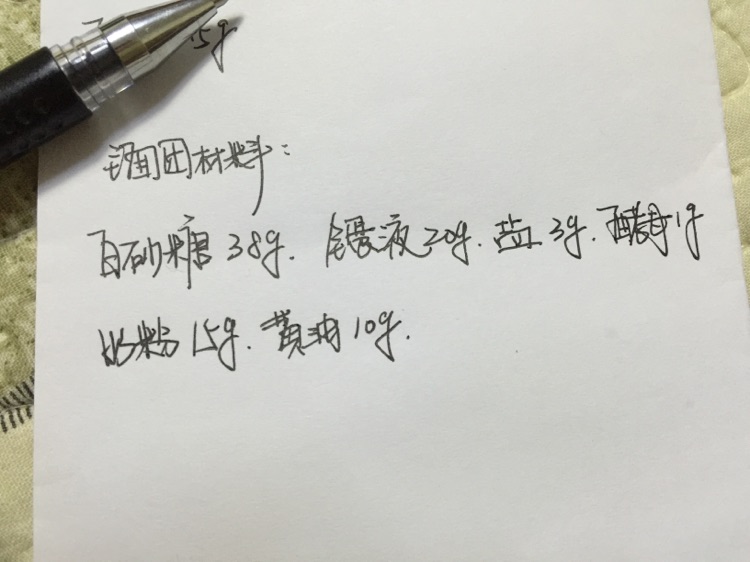 5g
主面团材料:
白砂糖38g.全蛋液20g.盐3g.酵母1g
奶粉15g.黄油10g.